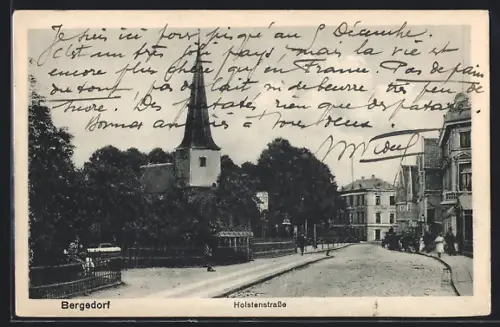 Je suis ici pour jusqu'au 5 Décembre.
C'est un très joli pays, mais la vie est
encore plus chère qu'en France. Pas de pain
du tout, pas de lait ni de beurre très peu de
sucre. Des patates rien que des patates
Bonnes amitiés à tous deux.
Bergedorf
Holstenstraße